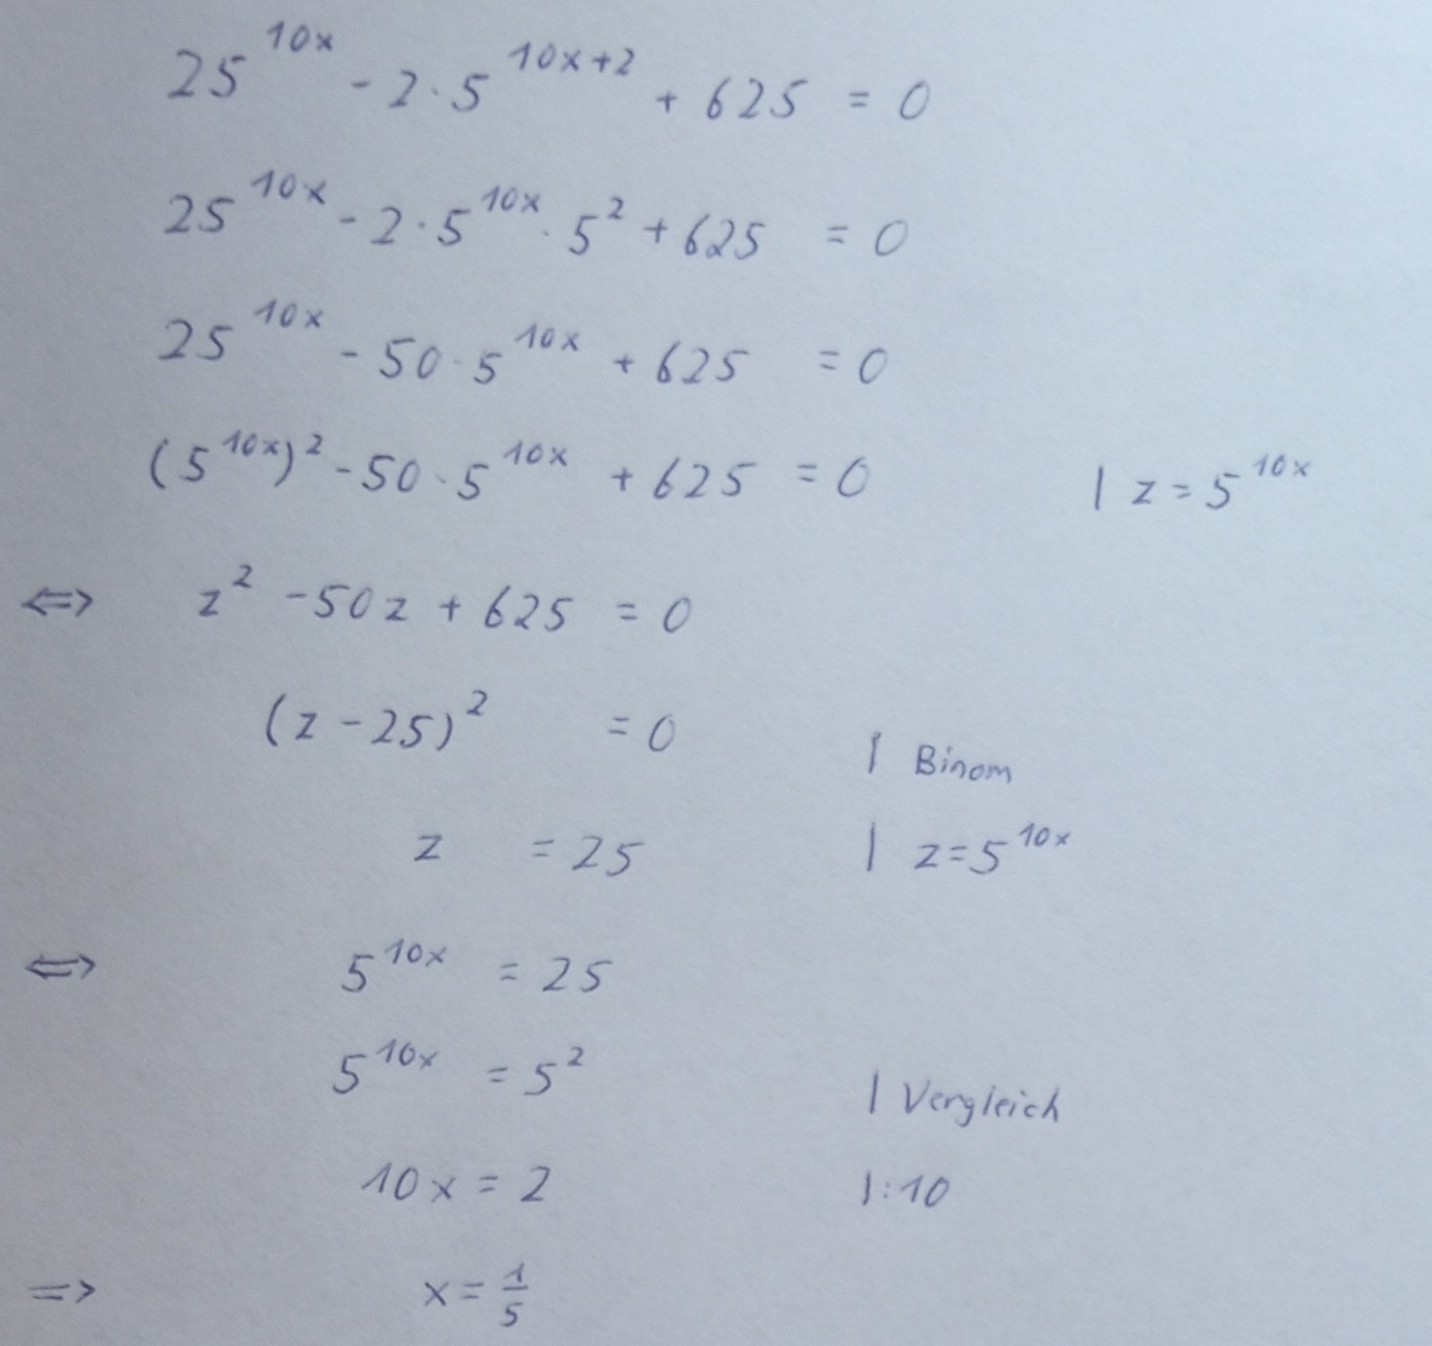 25^{10x} - 2 · 5^{10x+2} + 625 = 0
25^{10x} - 2 · 5^{10x} · 5^2 + 625 = 0
25^{10x} - 50 · 5^{10x} + 625 = 0
(5^{10x})^2 - 50 · 5^{10x} + 625 = 0 | z = 5^{10x}
⇔ z^2 - 50z + 625 = 0
(z - 25)^2 = 0 | Binom
z = 25 | z = 5^{10x}
⇔ 5^{10x} = 25
5^{10x} = 5^2 | Vergleich
10x = 2 | :10
=> x = \frac{1}{5}